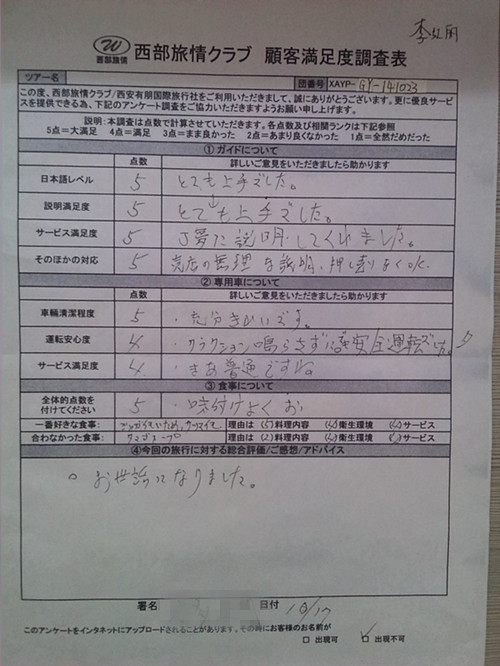 西部旅情
西部旅情クラブ 顧客満足度調査表
ツアー名 団番号 XAYP- GY-141023
この度、西部旅情クラブ/西安有朋国際旅行社をご利用いただきまして、誠にありがとうございます。更に優良サービ
スを提供できる為、下記のアンケート調査をご協力いただきますようお願い申し上げます。
説明:本調査は点数で計算させていただきます。各点数及び相関ランクは下記参照
5点=大満足 4点=満足 3点=まま良かった 2点=あまり良くなかった 1点=全然だめだった
①ガイドについて
点数 詳しいご意見をいただきましたら助かります
日本語レベル 5 とても上手でした。
説明満足度 5 とても上手でした。
サービス満足度 5 丁寧に説明してくれました。
そのほかの対応 5 売店の無理な説明、押し売りなくOK
②専用車について
点数 詳しいご意見をいただきましたら助かります
車輛清潔程度 5 ・充分きれいです。
運転安心度 4 ・クラクション鳴らさずに安全運転でした。
サービス満足度 4 ・まあ普通ですね
③食事について
全体的点数を
付けてください 5 ・味付けよく
一番好きな食事: 理由は (5)料理内容 ( )衛生環境 ( )サービス
合わなかった食事: 理由は (2)料理内容 ( )衛生環境 ( )サービス
④今回の旅行に対する総合評価/ご感想/アドバイス
○ お世話になりました。
署名 日付 10/17
このアンケートをインタネットにアップロードされることがあります。その時にお客様のお名前が
□ 出現可 ☑ 出現不可